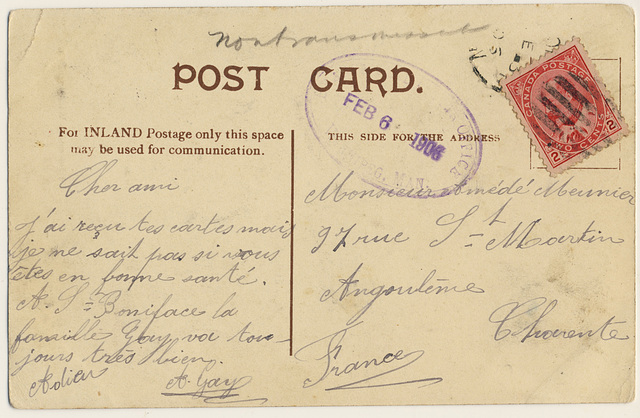 Non transmissed
POST CARD.
CANADA POSTAGE
2 TWO CENTS 2
FEB 6 1906
For INLAND Postage only this space
may be used for communication.
THIS SIDE FOR THE ADDRESS
Cher ami
j'ai reçu tes cartes mais
je ne sait pas si vous
êtes en bonne santé.
A. St Boniface la
famille Gay va tou-
jours très bien.
Adieu
A. Gay
Monsieur Amédé Meunier
97 rue St Martin
Angoulême
Charente
France